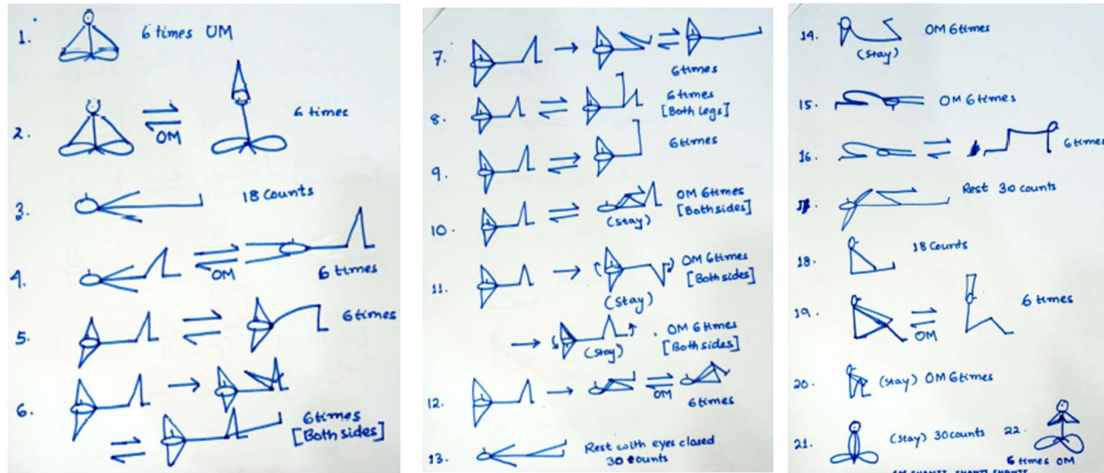 1. 6 times OM
2. OM 6 times
3. 18 counts
4. OM 6 times
5. 6 times
6. 6 times
[Both sides]
7. 6 times
8. 6 times
[Both legs]
9. 6 times
10. (stay) OM 6 times
[Both sides]
11. (stay) OM 6 times
[Both sides]
(stay) OM 6 times
[Both sides]
12. OM 6 times
13. Rest with eyes closed
30 counts
14. (stay) OM 6 times
15. OM 6 times
16. 6 times
17. Rest 30 counts
18. 18 counts
19. OM 6 times
20. (stay) OM 6 times
21. (stay) 30 counts
22. 6 times OM